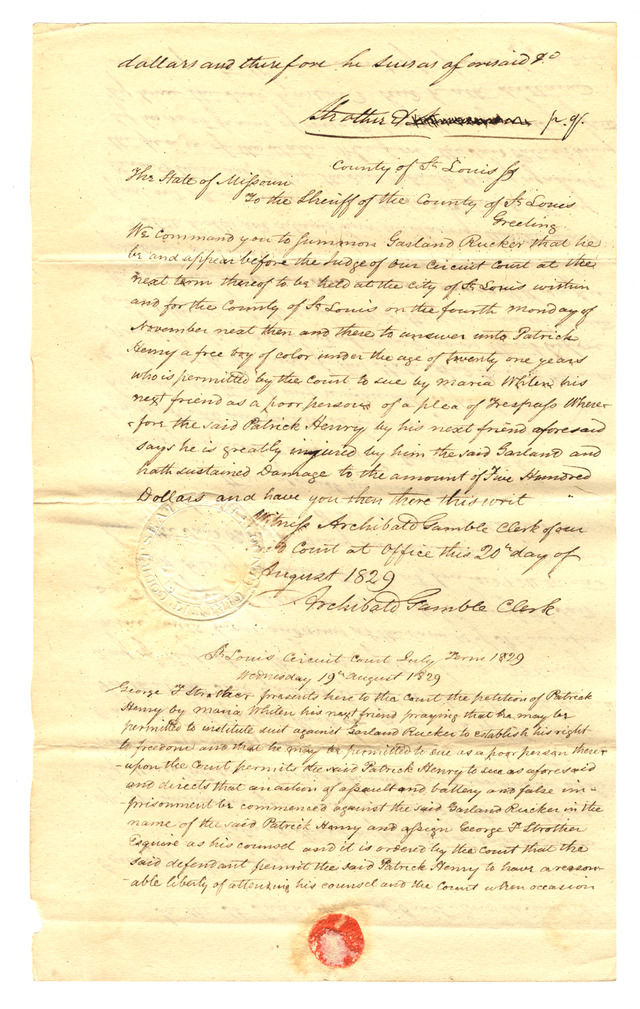 dollars and therefore he sues as aforesaid &c
Strother & p. q.
County of St Louis ss
The State of Missouri
To the Sheriff of the County of St Louis
Greeting
We command you to Summon Garland Rucker that he
be and appear before the Judge of our Circuit Court at the
next term thereof to be held at the city of St Louis within
and for the County of St Louis on the fourth Monday of
November next then and there to answer unto Patrick
Henry a free boy of color under the age of twenty one years
who is permitted by the Court to sue by Maria Whiten his
next friend as a poor person of a plea of Trespass Where-
-fore the said Patrick Henry by his next friend aforesaid
says he is greatly injured by him the said Garland and
hath sustained Damage to the amount of Five Hundred
Dollars and have you then there this writ
Witness Archibald Gamble Clerk of our
said Court at Office this 20th day of
August 1829
Archibald Gamble Clerk
St Louis Circuit Court July Term 1829
Wednesday 19th August 1829
George F Strother presents here to the Court the petition of Patrick
Henry by Maria Whiten his next friend praying that he may be
permitted to institute suit against Garland Rucker to establish his right
to freedom and that he may be permitted to sue as a poor person there-
-upon the Court permits the said Patrick Henry to sue as aforesaid
and directs that an action of assault and battery and false im-
-prisonment be commenced against the said Garland Rucker in the
name of the said Patrick Henry and assign George F Strother
Esquire as his counsel and it is ordered by the Court that the
said defendant permit the said Patrick Henry to have a reason-
-able liberty of attending his counsel and the Court when occasion